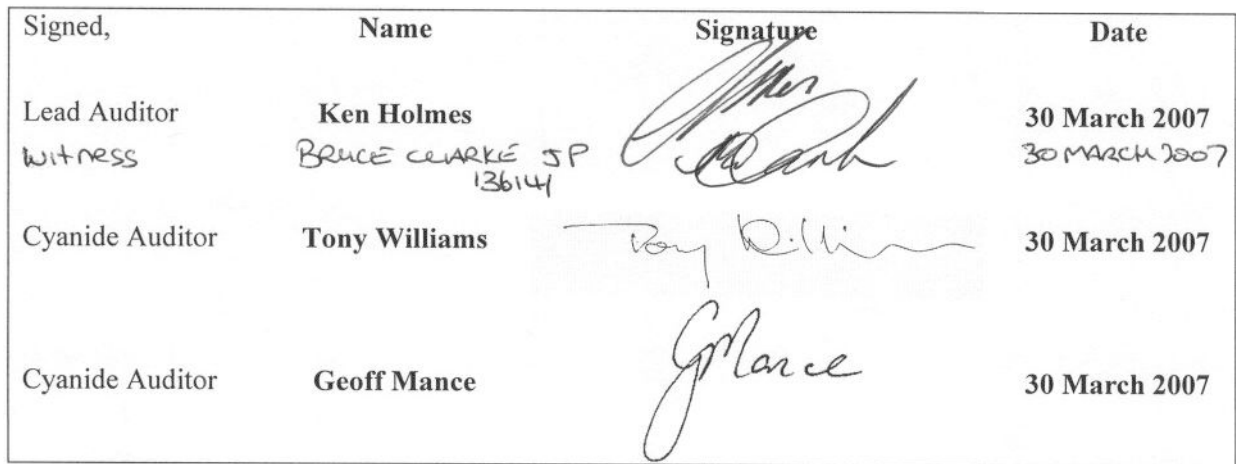 Signed, Name Signature Date
Lead Auditor Ken Holmes 30 March 2007
Witness BRUCE CLARKE JP 30 MARCH 2007
136141
Cyanide Auditor Tony Williams Tony Williams 30 March 2007
Cyanide Auditor Geoff Mance GMance 30 March 2007